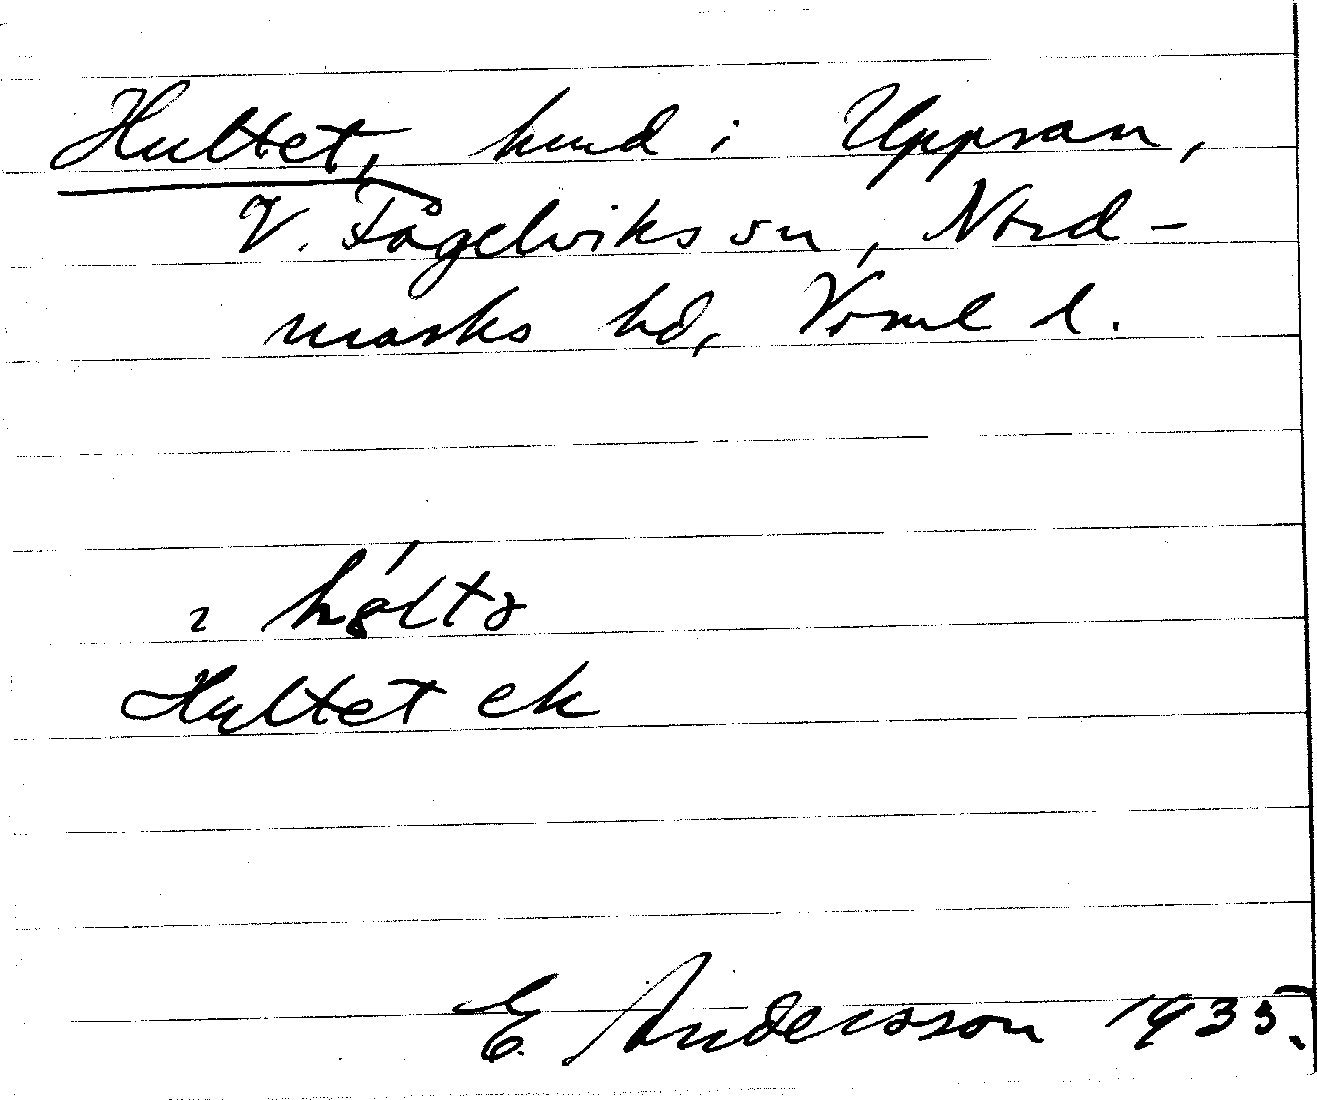 Hultet, hmd i Uppsan,
V. Fågelviks sn, Nord-
marks hd, Vrml d.
hǿlta
Hultet ek
E Andersson 1935.